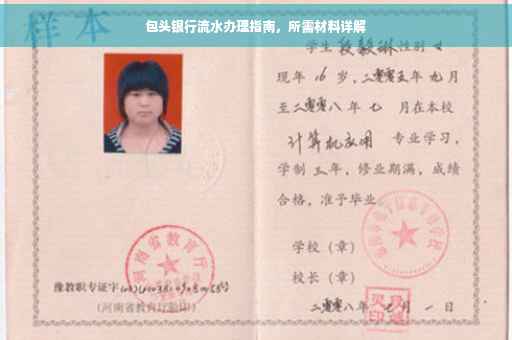 包头银行流水办理指南，所需材料详解
样本
学生 段毅琳 性别 女
现年 16 岁，二零零五年 九月
至二零零八年 七 月在本校
计算机应用 专业学习，
学制 三 年，修业期满，成绩
合格，准予毕业
学校（章）
校长（章）
二零零八年 七 月 一 日
河南省教育厅
豫教职专证字
（河南省教育厅验印）